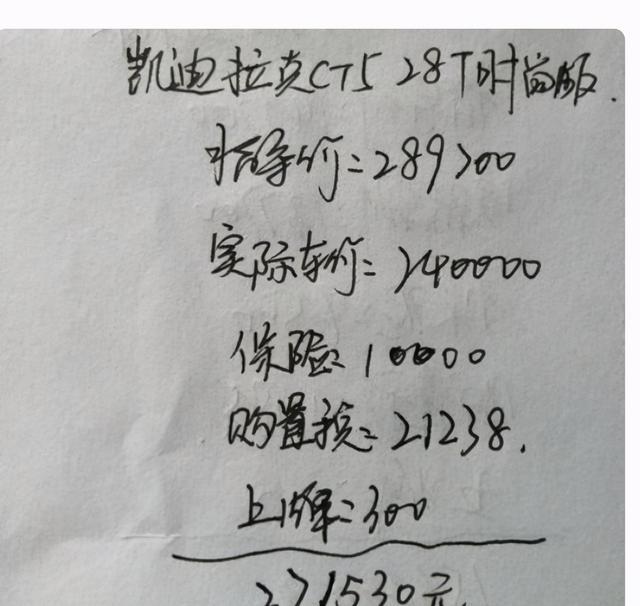 凯迪拉克CT5 28T时尚版.
指导价=289700
实际车价=240000
保险=10000
购置税=21238.
上牌=300
271530元